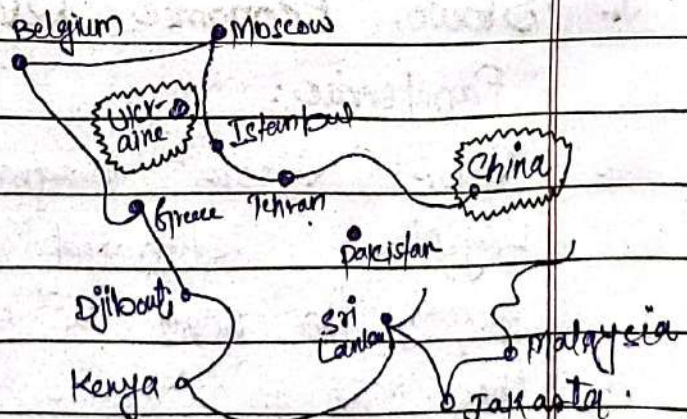 Belgium
Moscow
Ukr-
aine
Istanbul
China
Tehran
Greece
Pakistan
Djibouti
Sri
Lanka
Malaysia
Kenya
Jakarta